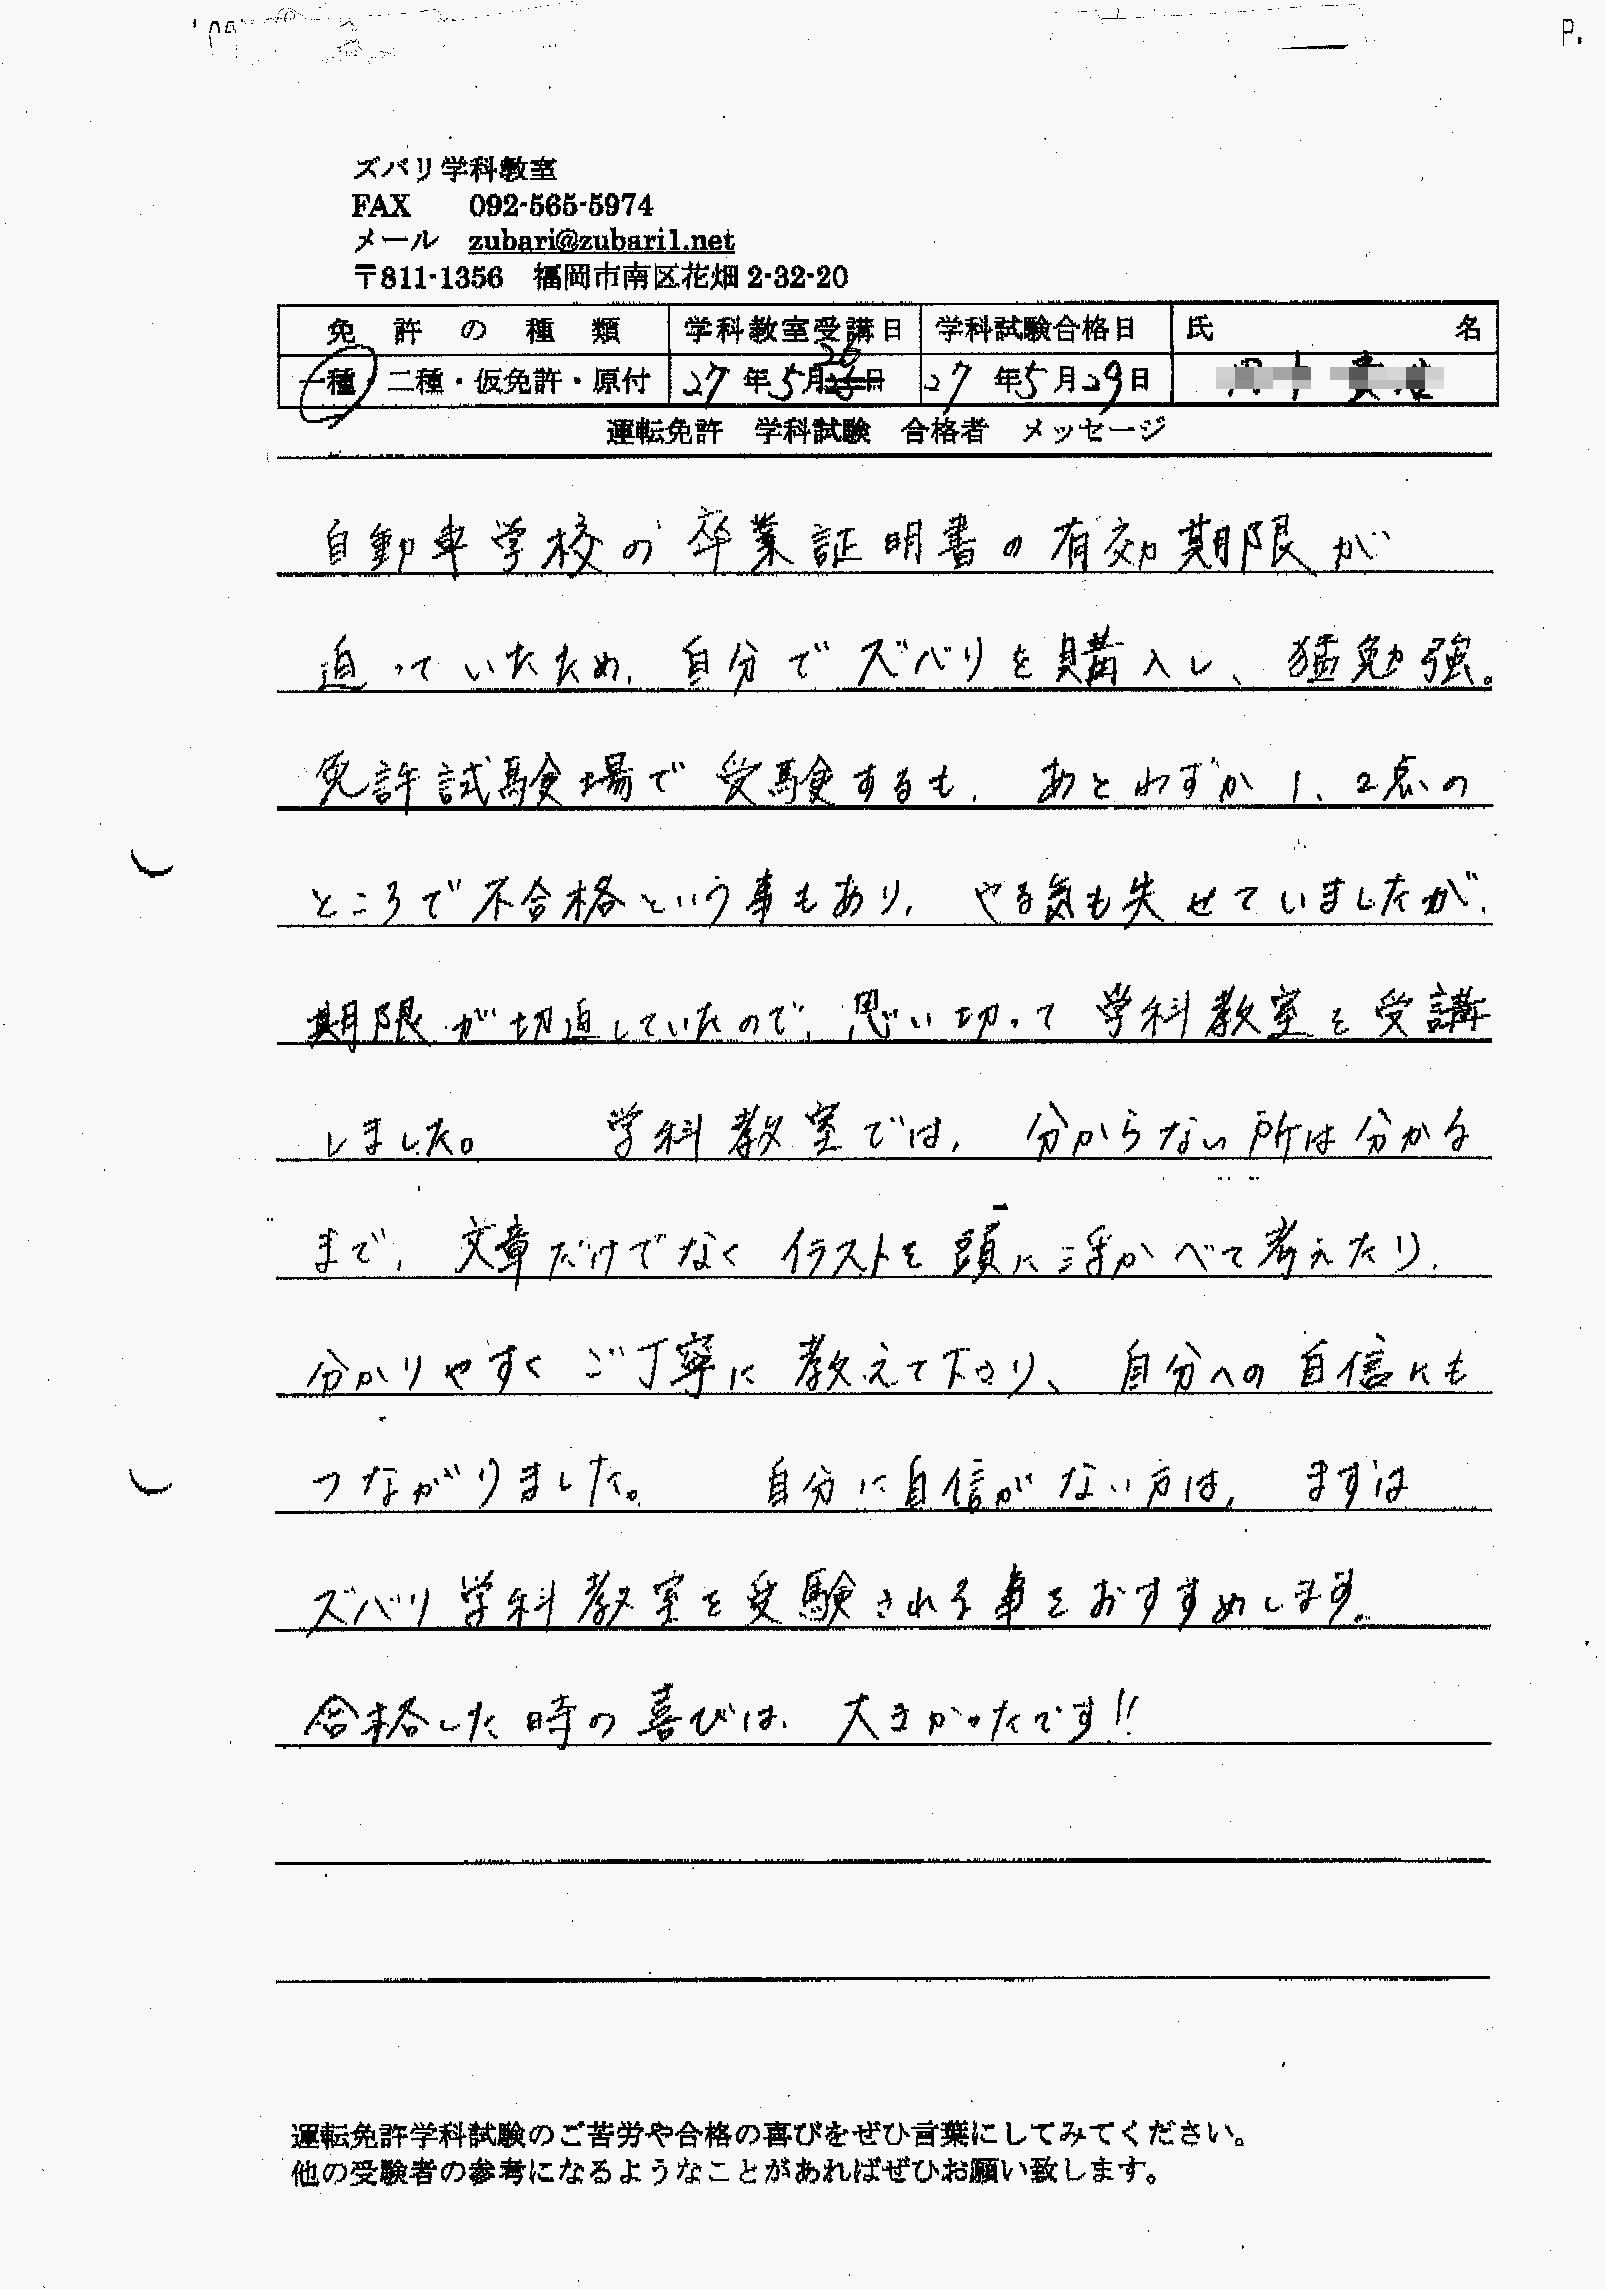 ズバリ学科教室
FAX 092-565-5974
メール zubari@zubari1.net
〒811-1356 福岡市南区花畑 2-32-20
免許の種類 学科教室受講日 学科試験合格日 氏名
一種・二種・仮免許・原付 27年5月26日 27年5月29日
運転免許 学科試験 合格者 メッセージ
自動車学校の卒業証明書の有効期限が
迫っていたため、自分でズバリを購入し、猛勉強。
免許試験場で受験するも、あとわずか1、2点の
ところで不合格という事もあり、やる気も失せていましたが、
期限が切迫していたので、思い切って学科教室を受講
しました。 学科教室では、分からない所は分かる
まで、文章だけでなくイラストを頭に浮かべて考えたり、
分かりやすくご丁寧に教えて下さり、自分への自信にも
つながりました。 自分に自信がない方は、まずは
ズバリ学科教室を受験される事をおすすめします。
合格した時の喜びは、大きかったです!!
運転免許学科試験のご苦労や合格の喜びをぜひ言葉にしてみてください。
他の受験者の参考になるようなことがあればぜひお願い致します。